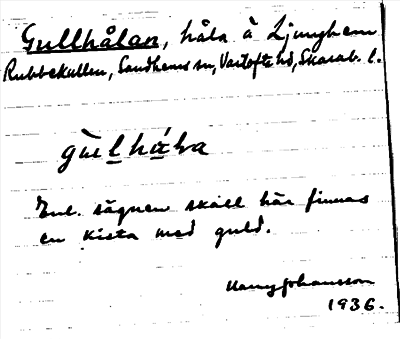 Gullhålan, håla å Ljunghem
Rubbekullen, Sandhems sn, Vartofta hd, Skarab. l.
gu̇l̲há̲la
Enl. sägnen skall här finnas
en kista med guld.
Harry Johansson
1936.